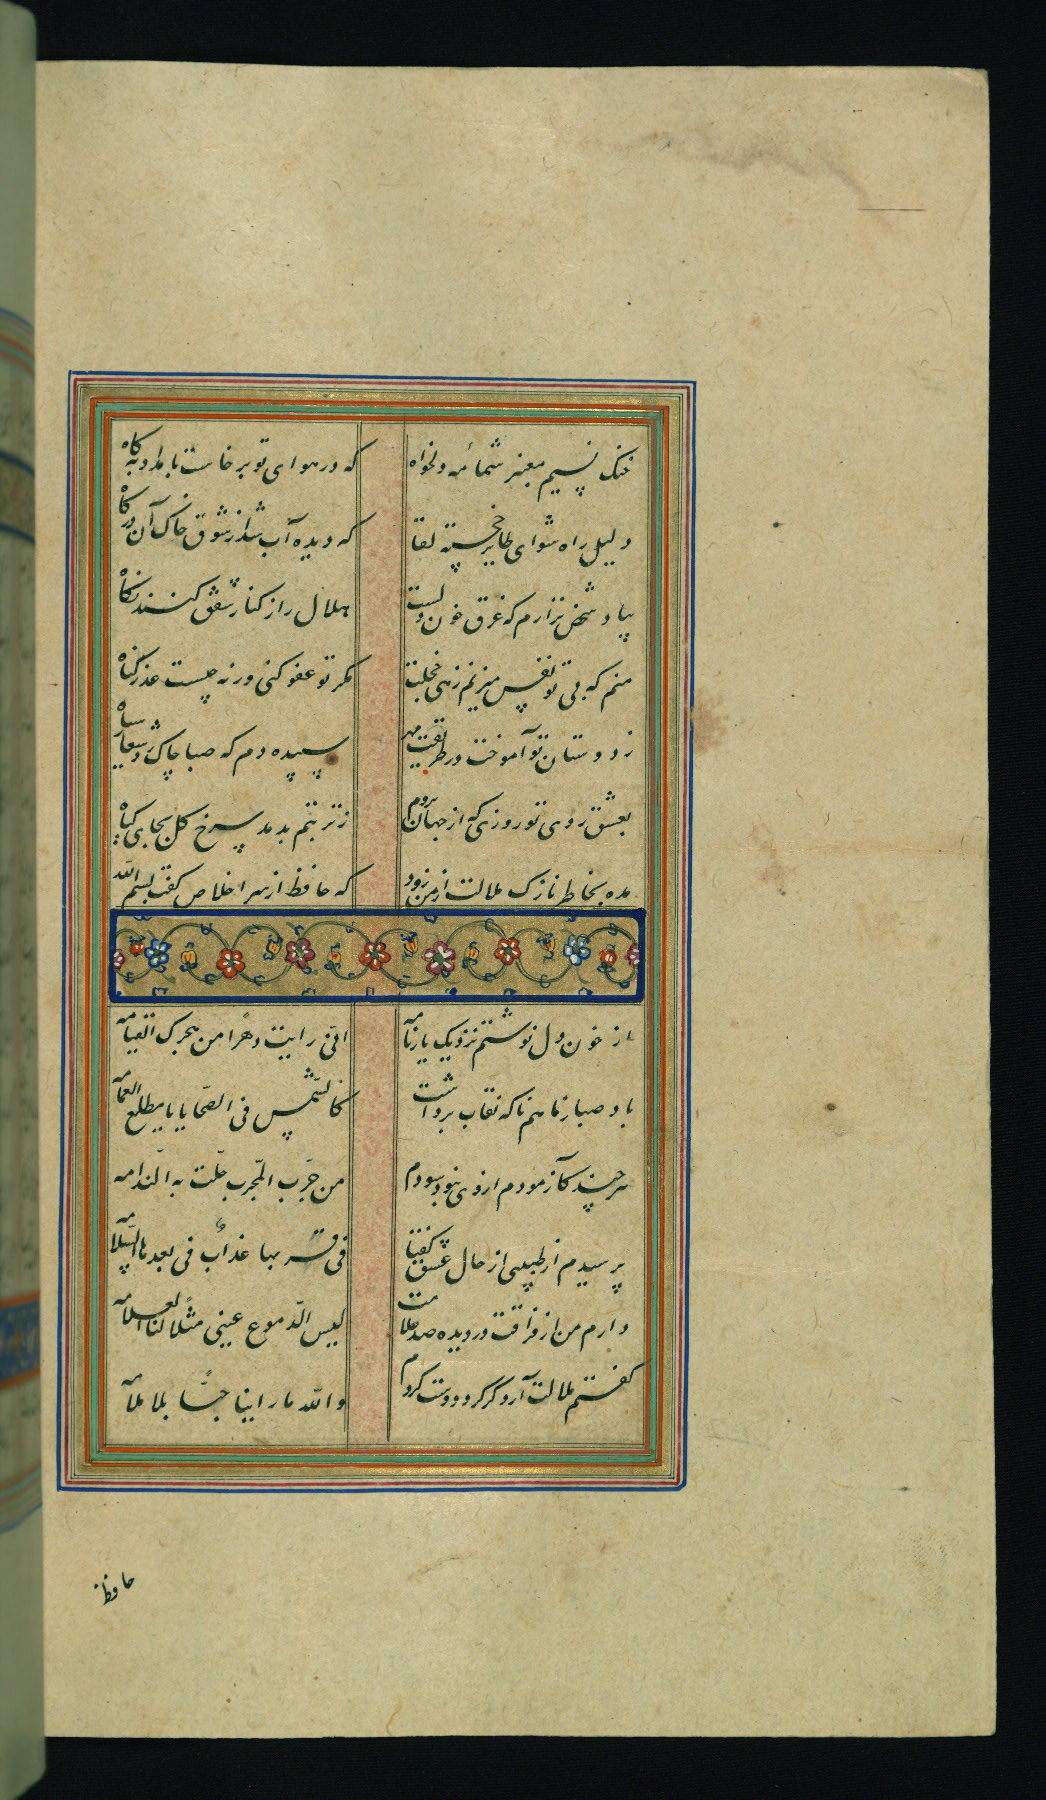 خنک نسیم معنبر شمامٔه دلخواه که در هوای تو برخاست بامداد بکاه
دلیل راه شو ای طایر خجسته لقا که دیده آب شد از شوق خاک آن درکاه
بیاد شخص نزارم که غرق خون دلست هلال را ز کنار شفق کنند نکاه
منم که بی تو نفس میزنم زهی خجلت مکر تو عفو کنی ورنه چیست عذر کناه
ز دوستان تو آموخت در طریقت مهر سپیده دم که صبا چاک زد شعار سیاه
بعشق روی تو روزی که از جهان بروم ز تربتم بدمد سرخ کل بجای کیاه
مده بخاطر نازک ملالت از من زود که حافظ از سر اخلاص کفت بسم الله
از خون دل نوشتم نزدیک یار نامه انّی رایت دهرًا من هجرک القیامه
باد صبا ز ماهم ناکه نقاب برداشت کالشّمس فی الضحایا یا یطلع الغمامه
هر چند کآزمودم از وی نبود سودم من جرّب المجرّب حلّت به الندامه
پرسیدم از طبیبی از حال عشق کفتا فی قربها عذابٌ فی بعدها السّلامه
دارم من از فراقت در دیده صد علامت لیس الدّموع عینی مثلا لنا العلامه
کفتم ملالت آرد کر کرد دوست کردم والله ما راینا حبًّا بلا ملامه
حافظ